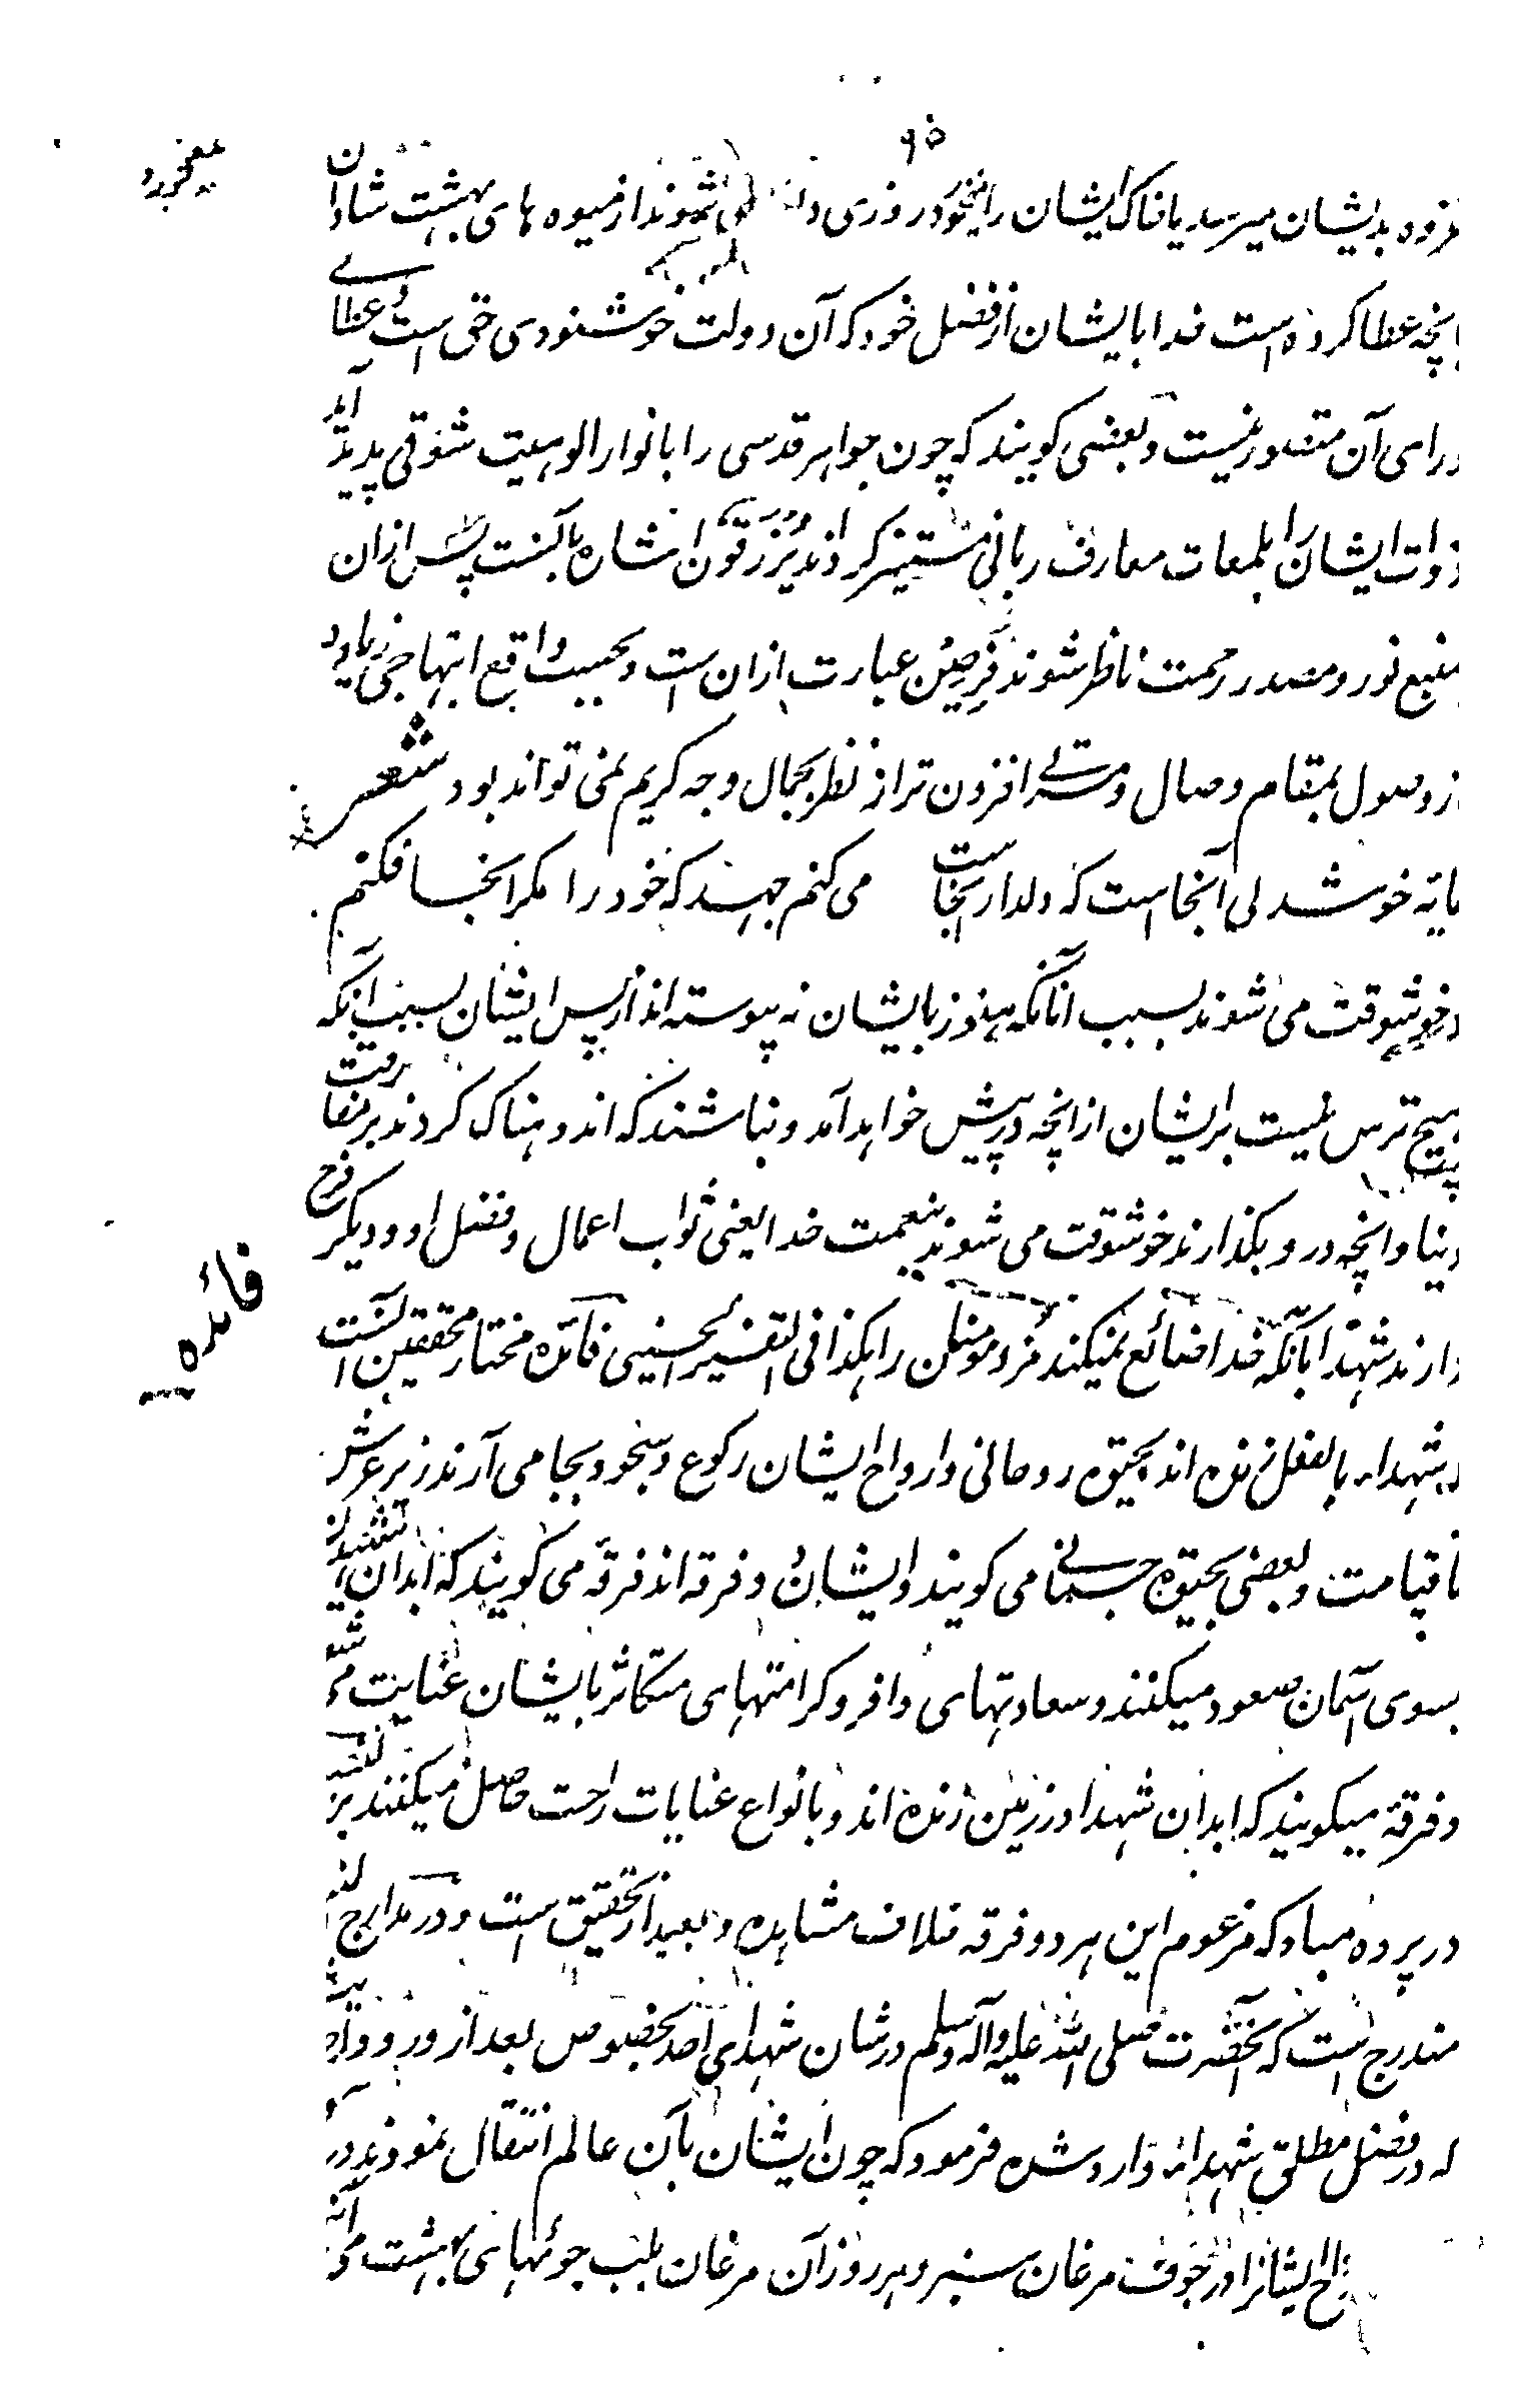 ۹۵
بدیشان میرسد یا خاک ایشان را میخورد روزی می شوند از میوه های بهشت شادان
بانچه عطا کرده است خدا بایشان از فضل خود که آن دولت خوشنودی حق است و عطای
ورای آن متصور نیست و بعضی کویند که چون جواهر قدسی را بانوار الوهیت شوقی پدید آید
ذوات ایشان را بلمعات معارف ربانی مستنیر کردانند یرزقون اشاره بآنست پس ازان
بمنبع نور و مصدر رحمت ناظر شوند فرحین عبارت ازان است و بحسب واقع ابتهاجی زیاده
از وصول بمقام وصال و مسرتے افزون تر از نظر بجمال وجه کریم نمی تواند بود شعر
مایه خوشدلی آنجاست که دلدار آنجاست می کنم جهد که خود را مکر آنجا فکنم
و خوشوقت می شوند بسبب آنانکه هنوز بایشان نه پیوسته اند از پس ایشان بسبب آنکه
هیچ ترس نیست بر ایشان ازانچه در پیش خواهد آمد و نباشند که اندوهناک کردند بر مفارقت
دنیا و انچه درو بکذارند خوشوقت می شوند بنعمت خدا یعنی ثواب اعمال و فضل او و دیکر فرح
دارند شهدا بآنکه خدا ضائع نمیکند مزد مومنان را هکذا فی التفسیر الحسینی فائده مختار محققین آنست
فائده
شهداء بالفعل زنده اند بحیوة روحانی و ارواح ایشان رکوع و سجود بجا می آرند زیر عرش
تا قیامت و بعضی بحیوة جسمانی می کویند و ایشان دو فرقه اند فرقه می کویند که ابدان
بسوی آسمان صعود میکنند و سعادتهای وافر و کرامتهای متکاثر بایشان عنایت
و فرقه میکویند که ابدان شهدا در زمین زنده اند و بانواع عنایات راحت حاصل میکنند
در پرده مباد که مزعوم این هر دو فرقه خلاف مشاهده و بعید از تحقیق است و در مدارج
مندرج است که آنحضرت صلی الله علیه وآله وسلم در شان شهدای احد بخصوص بعد از ورود
که در فضل مطلق شهدا وارد شده فرمود که چون ایشان بآن عالم انتقال نمودند
ایشانرا در جوف مرغان سبز و هر روز آن مرغان بلب جوئهای بهشت می آیند